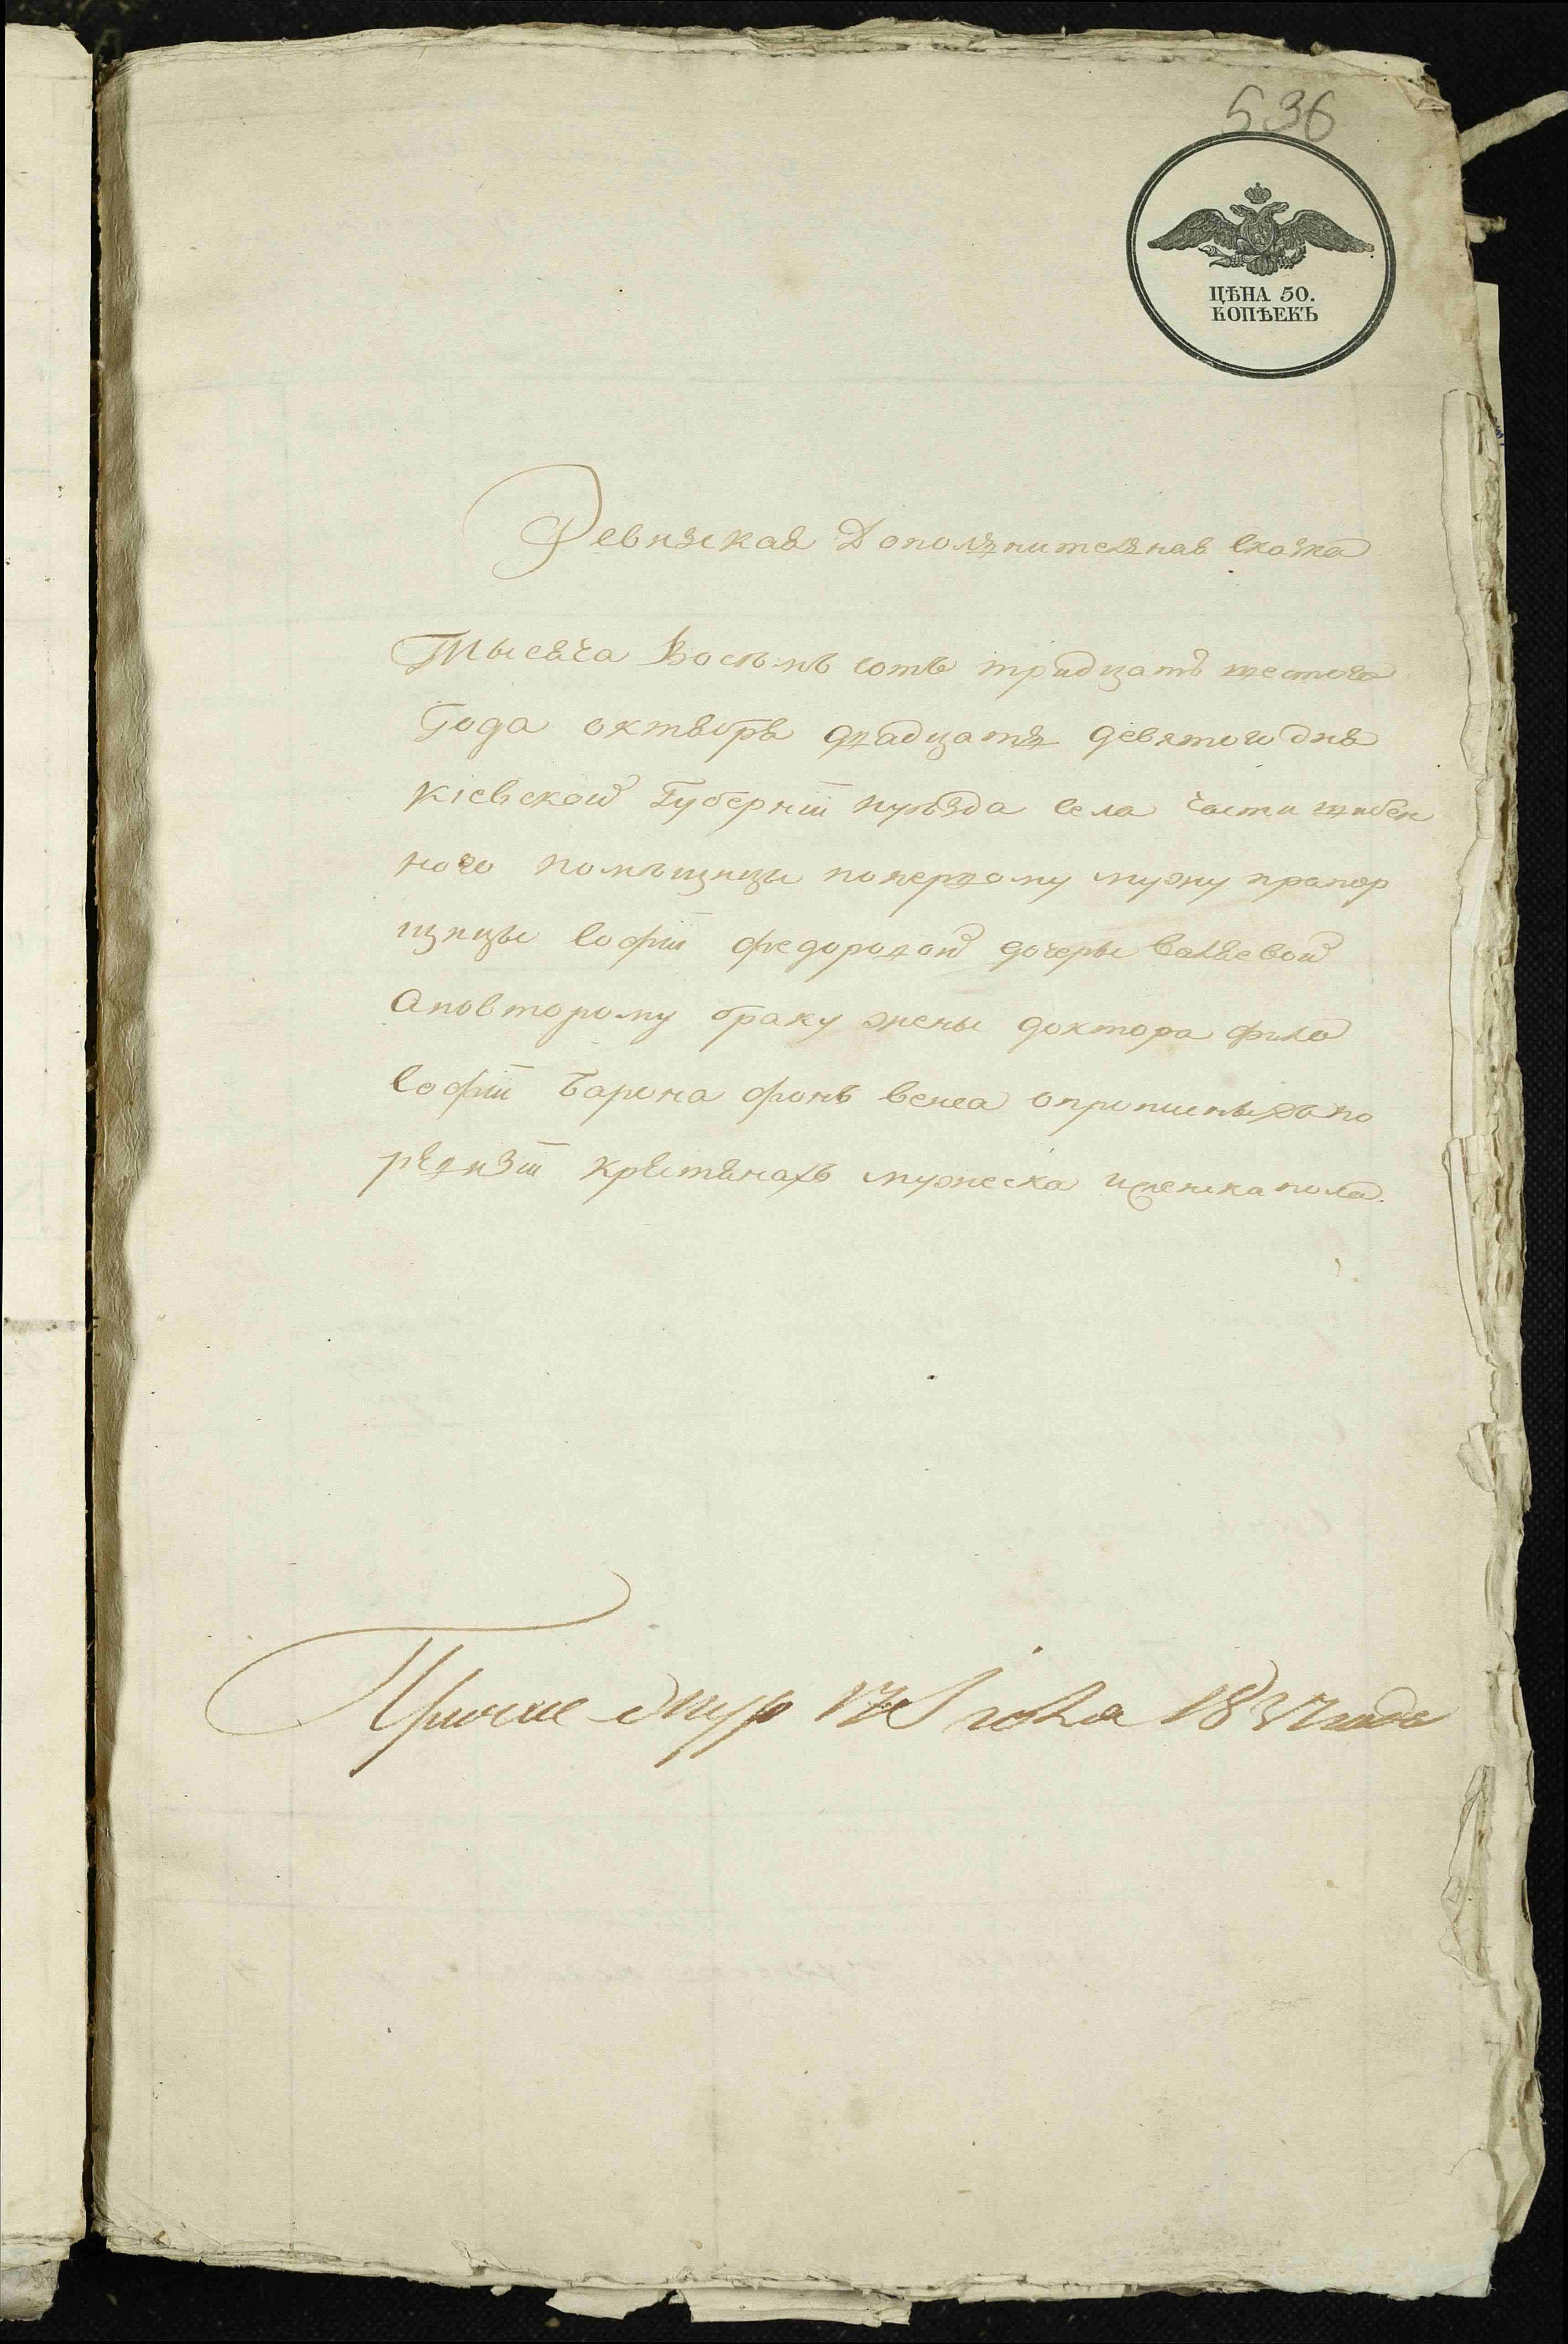 536
ЦѢНА 50.
КОПѢЕКЪ
Ревизская Дополнителная Сказка
Тысяча Восемъ сотъ тридцать шестого
Года октября двадцать девятого дня
Кіевской Губерніи уѣзда Села части
ного помѣщицы попервому мужу прапор
щицы Софіи федоровой дочеры
А повторому браку жены доктора фило
Софіи Барона фонъ опрописныхъ по
ревизіи крестянахъ мужеска иженска пола.
17 1837 года